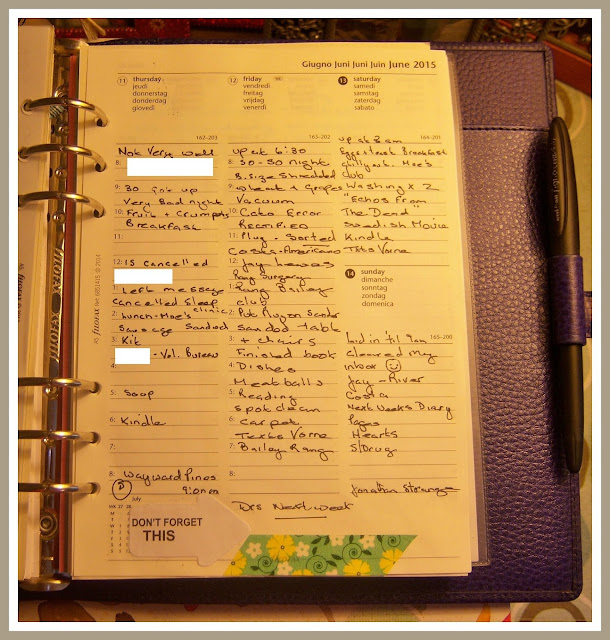 Giugno Juni Juni Juin June 2015
11 thursday
jeudi
donnerstag
donderdag
giovedì
162-203
Not Very well
8:
9: 30 Got up
Very Bad night
10: Fruit + Crumpets
Breakfast
11:
12: is cancelled
1: Left message
Cancelled Sleep
clinic
2: Lunch - Moe's
Sausage Sandwich
3: Kit
- Vol. Bureau
4:
5: Soup
6: Kindle
7:
8: Wayward Pines
9:00pm
12 friday
vendredi
freitag
vrijdag
venerdì
163-202
up at 6:30
8: 50-50 night
B. Size Shredded
9: wheat + Grapes
Vacuum
10: Cato Error
RECTIFIED
11: Plug - Sorted
Costa - Americano
12: Jay
Rang Surgery
1: Rang Bailey
club
2: Put Sander
Sanded table
3: + chairs
Finished book
4: Dishes
Meatballs
5: Reading
Spot clean
6: Carpet
Texts Vorne
7: Bailey Rang
8:
Drs Next week
13 saturday
samedi
samstag
zaterdag
sabato
164-201
up at 8am
Eggs + toast Breakfast
Moe's
club
Washing x 2
"Echos From
The Dead"
Swedish Movie
Kindle
Txts Vorne
14 sunday
dimanche
sonntag
zondag
domenica
165-200
Laid in 'til 9am
Cleared my
inbox
Jay - River
Costa
Next Weeks Diary
Pages
Hearts
S/Drug
Jonathan Strange
July
DON'T FORGET
THIS
filofax
© 2014